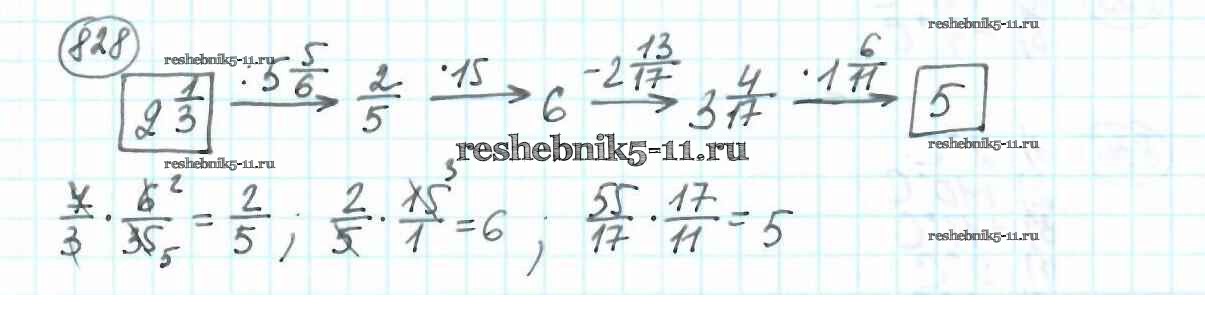 828
reshebnik5-11.ru
reshebnik5-11.ru
2 1/3 : 5 5/6 → 2/5 · 15 → 6 - 2 13/17 → 3 4/17 · 1 6/11 → 5
reshebnik5-11.ru
reshebnik5-11.ru
7/3 · 6 2/35 5 = 2/5 ; 2/5 · 15 3/1 = 6 ; 55/17 · 17/11 = 5
reshebnik5-11.ru